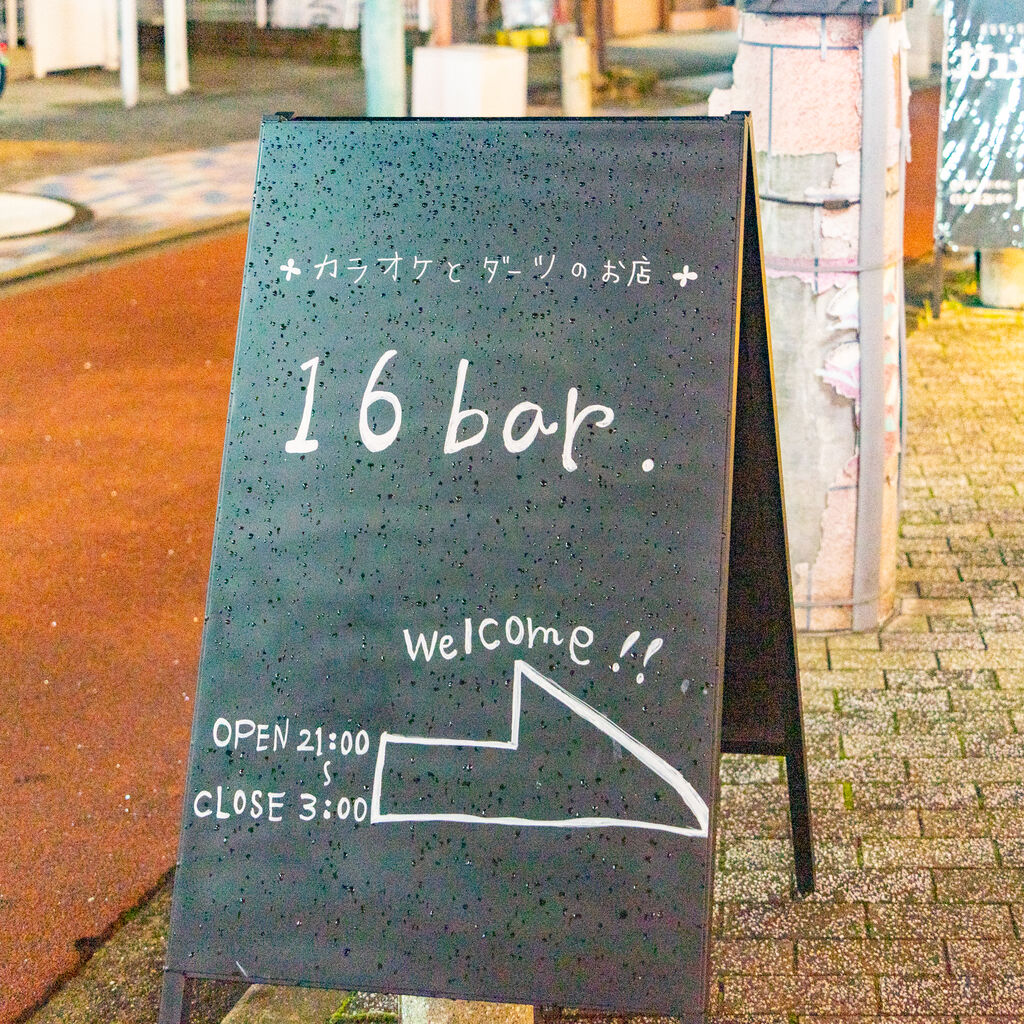 カラオケとダーツのお店
16 bar.
Welcome!!
OPEN 21:00
~
CLOSE 3:00